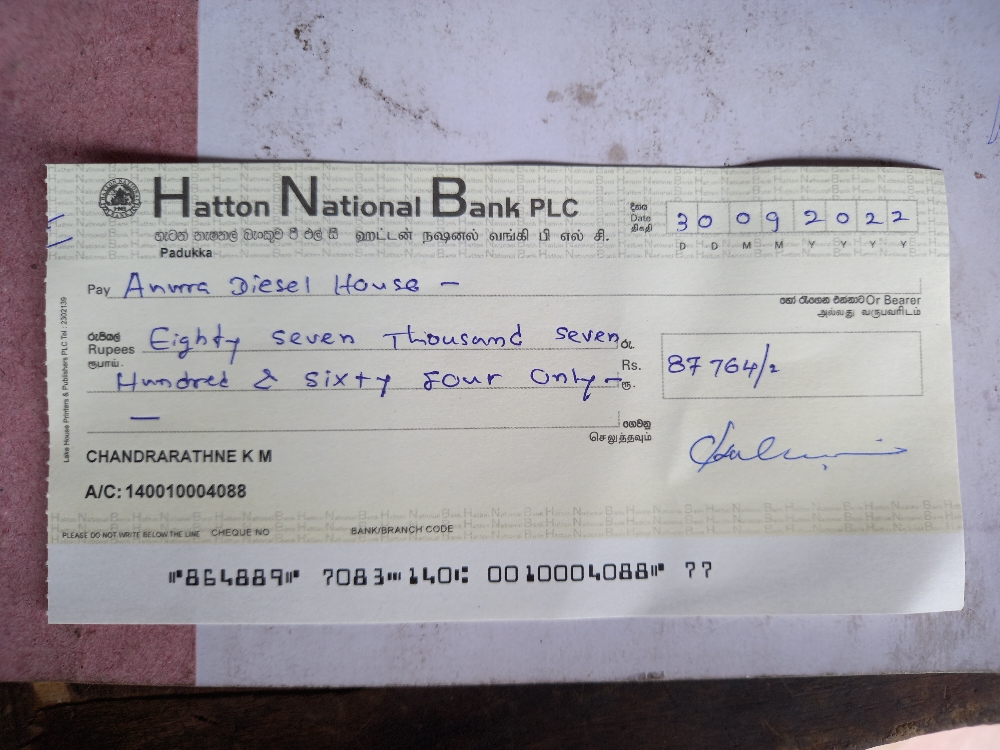 Hatton National Bank PLC
හැටන් නැෂනල් බැංකුව පී එල් සී ஹட்டன் நஷனல் வங்கி பி எல் சி.
Padukka
දිනය
Date
திகதி
30 09 2022
D D M M Y Y Y Y
Pay Anura Diesel House -
හෝ රැගෙන එන්නාට Or Bearer
அல்லது வருபவரிடம்
රුපියල්
Rupees
ரூபாய்
Eighty seven Thousand seven
Hundred & sixty four only -
රු.
Rs.
ரூ.
87 764/2
ගෙවනු
செலுத்தவும்
CHANDRARATHNE K M
A/C: 140010004088
PLEASE DO NOT WRITE BELOW THE LINE CHEQUE NO BANK/BRANCH CODE
⑈864889⑈ 7083⑉140⑆ 0010004088⑈ 77
Lake House Printers & Publishers PLC Tel : 2302139